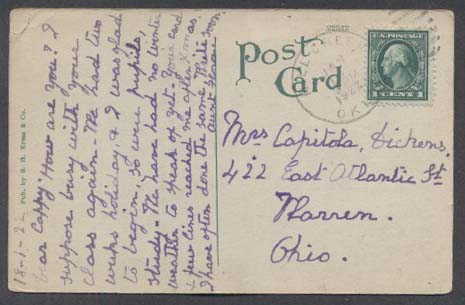 22522
Post Card
OKLA
1 CENT 1
18-1-22
Dear Cappy: How are you? I
suppose busy with your
class again - We had two
weeks holiday, & I was glad
to begin, so were pupils,
study - We have had no winter
weather to speak of yet - Your card
& few lines reached me after Xmas.
I have often done the same. Write soon.
Aunt
Mrs Capitola, Dickens,
422 East Atlantic St
Warren.
Ohio.
Pub. by S. H. Kress & Co.